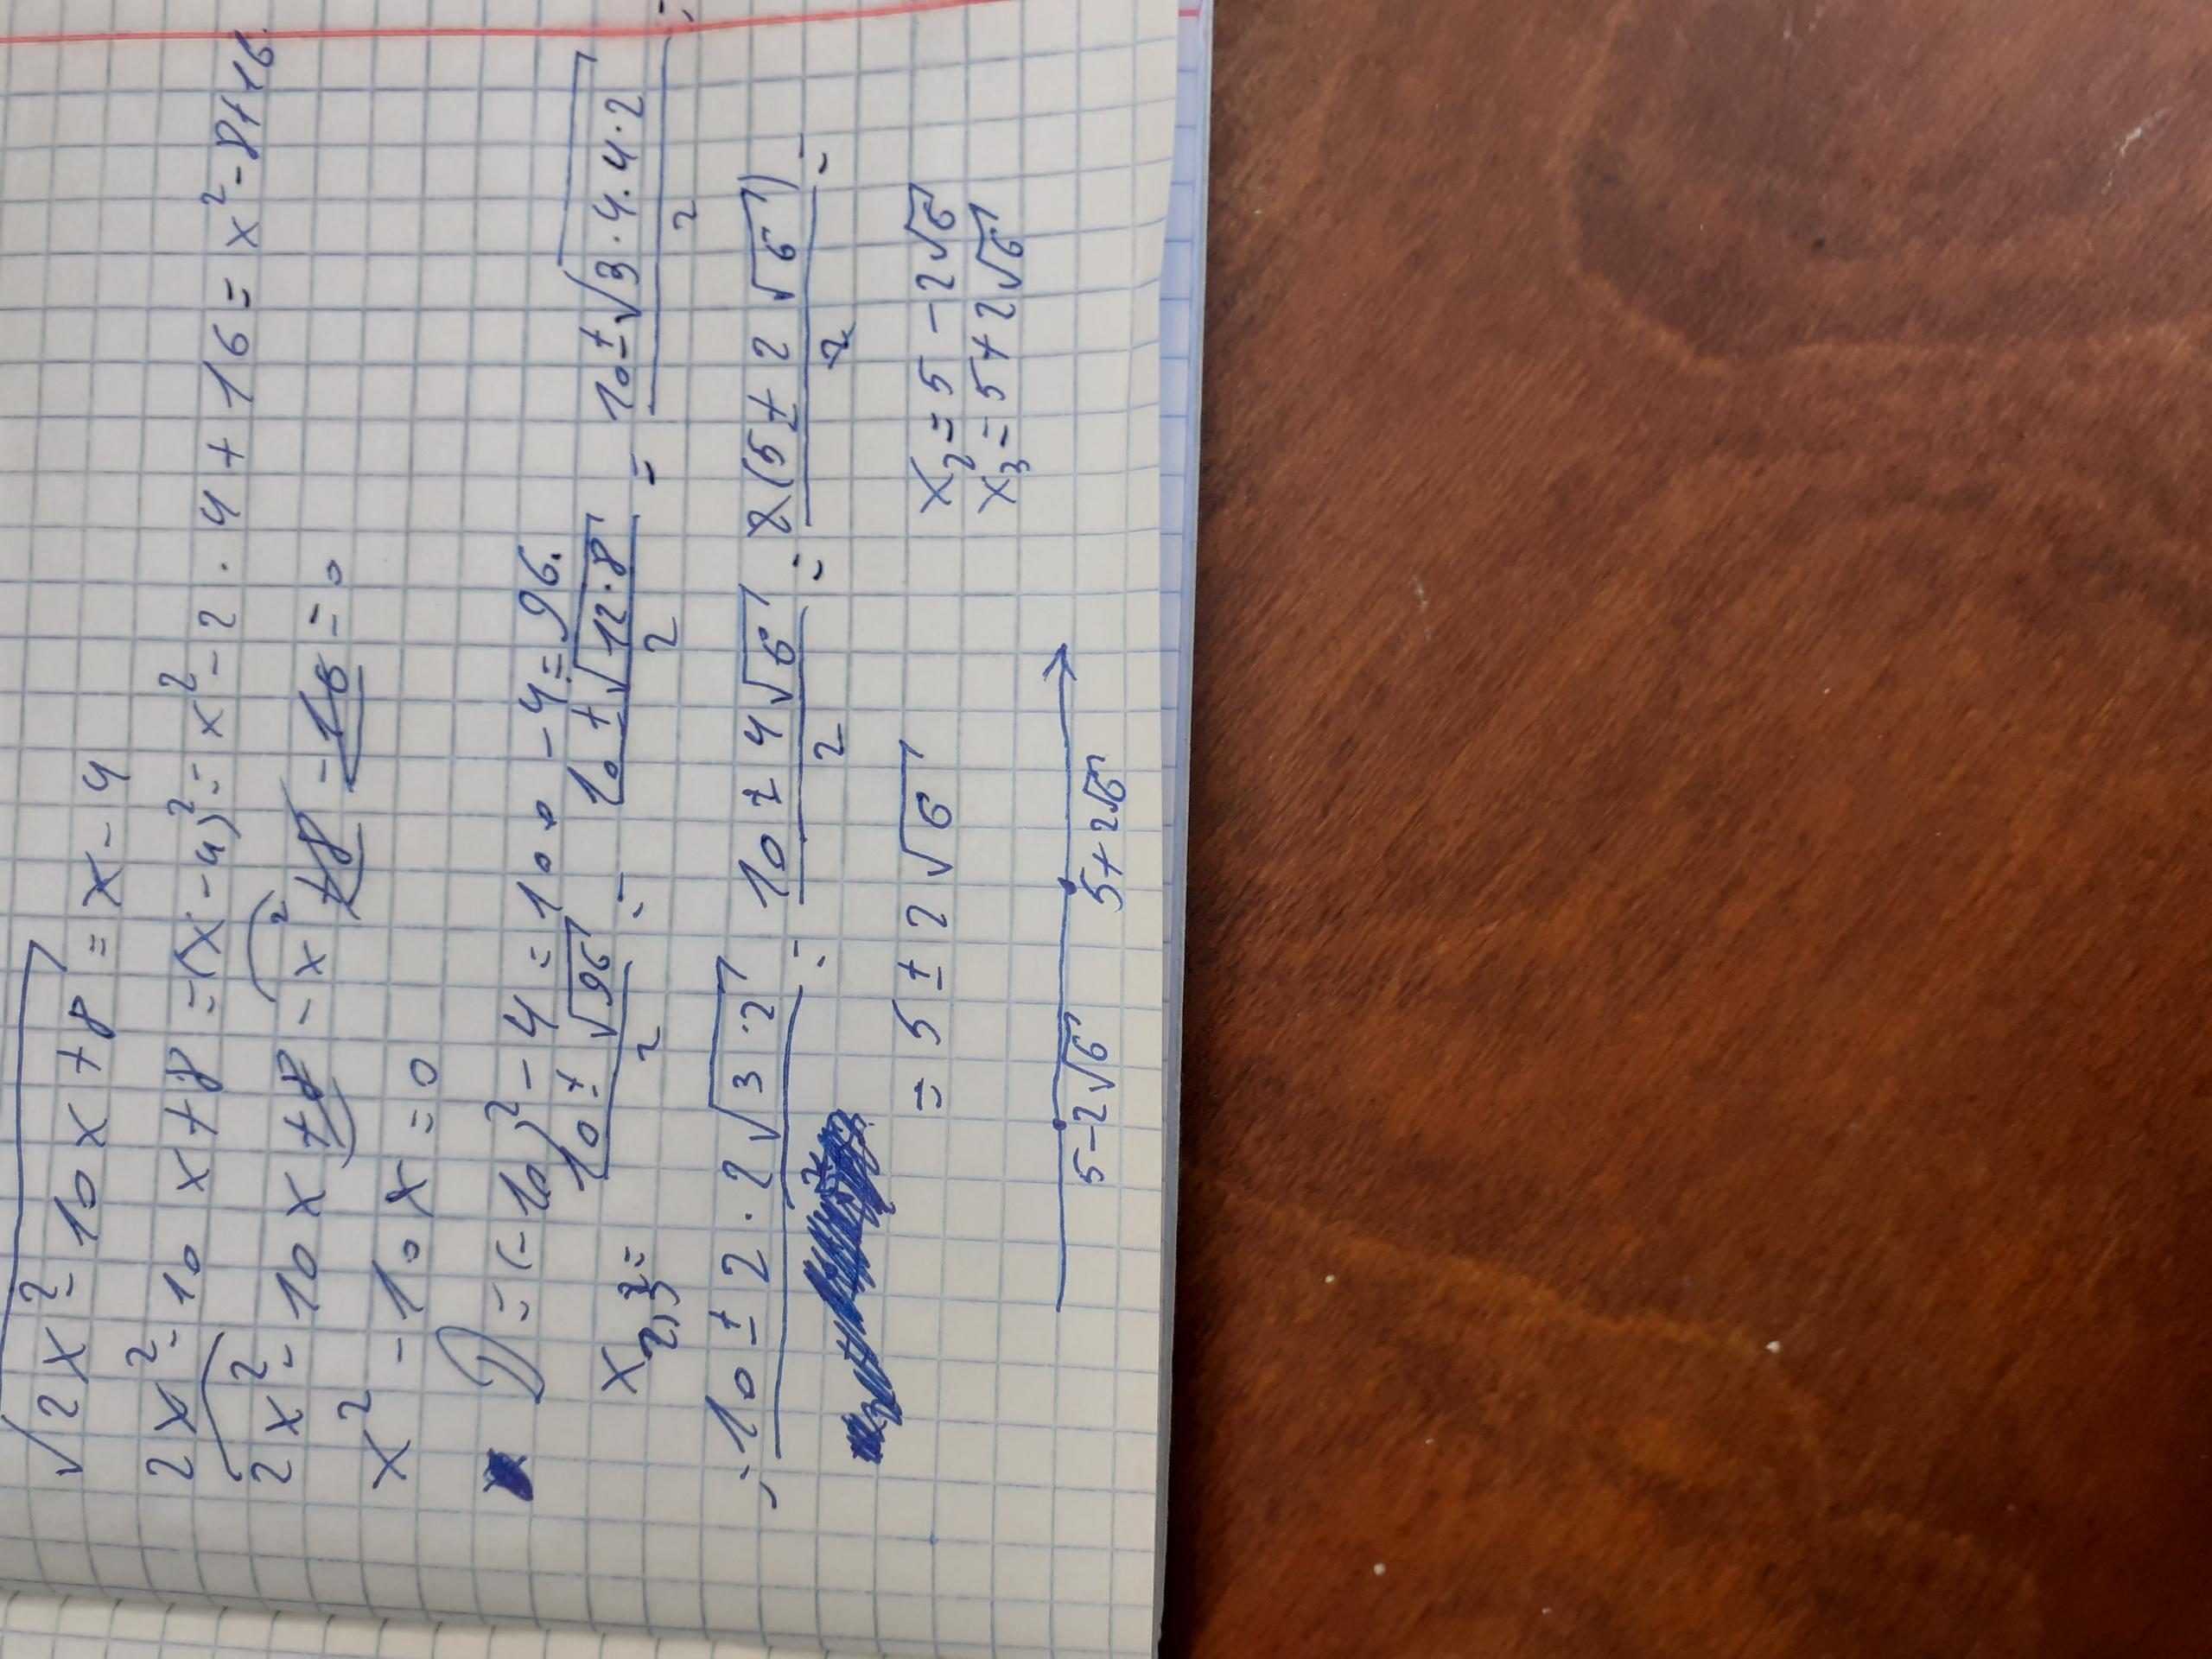 √2x²-10x+8 = x-4
2x²-10x+8 = (x-4)² = x²-2·4+16 = x²-8+16.
2x²-10x+8 - x² +8 -16 = 0
x² - 10x = 0
D = (-10)² - 4 = 100 - 4 = 96.
x2,3 = 10±√96/2 = 10±√12·8/2 = 10±√3·4·4·2/2 =
= 10±2·2√3·2/2 = 10±4√6/2 = 2(5±2√6)/2 =
= 5±2√6
x2 = 5-2√6
x3 = 5+2√6
5-2√6 5+2√6